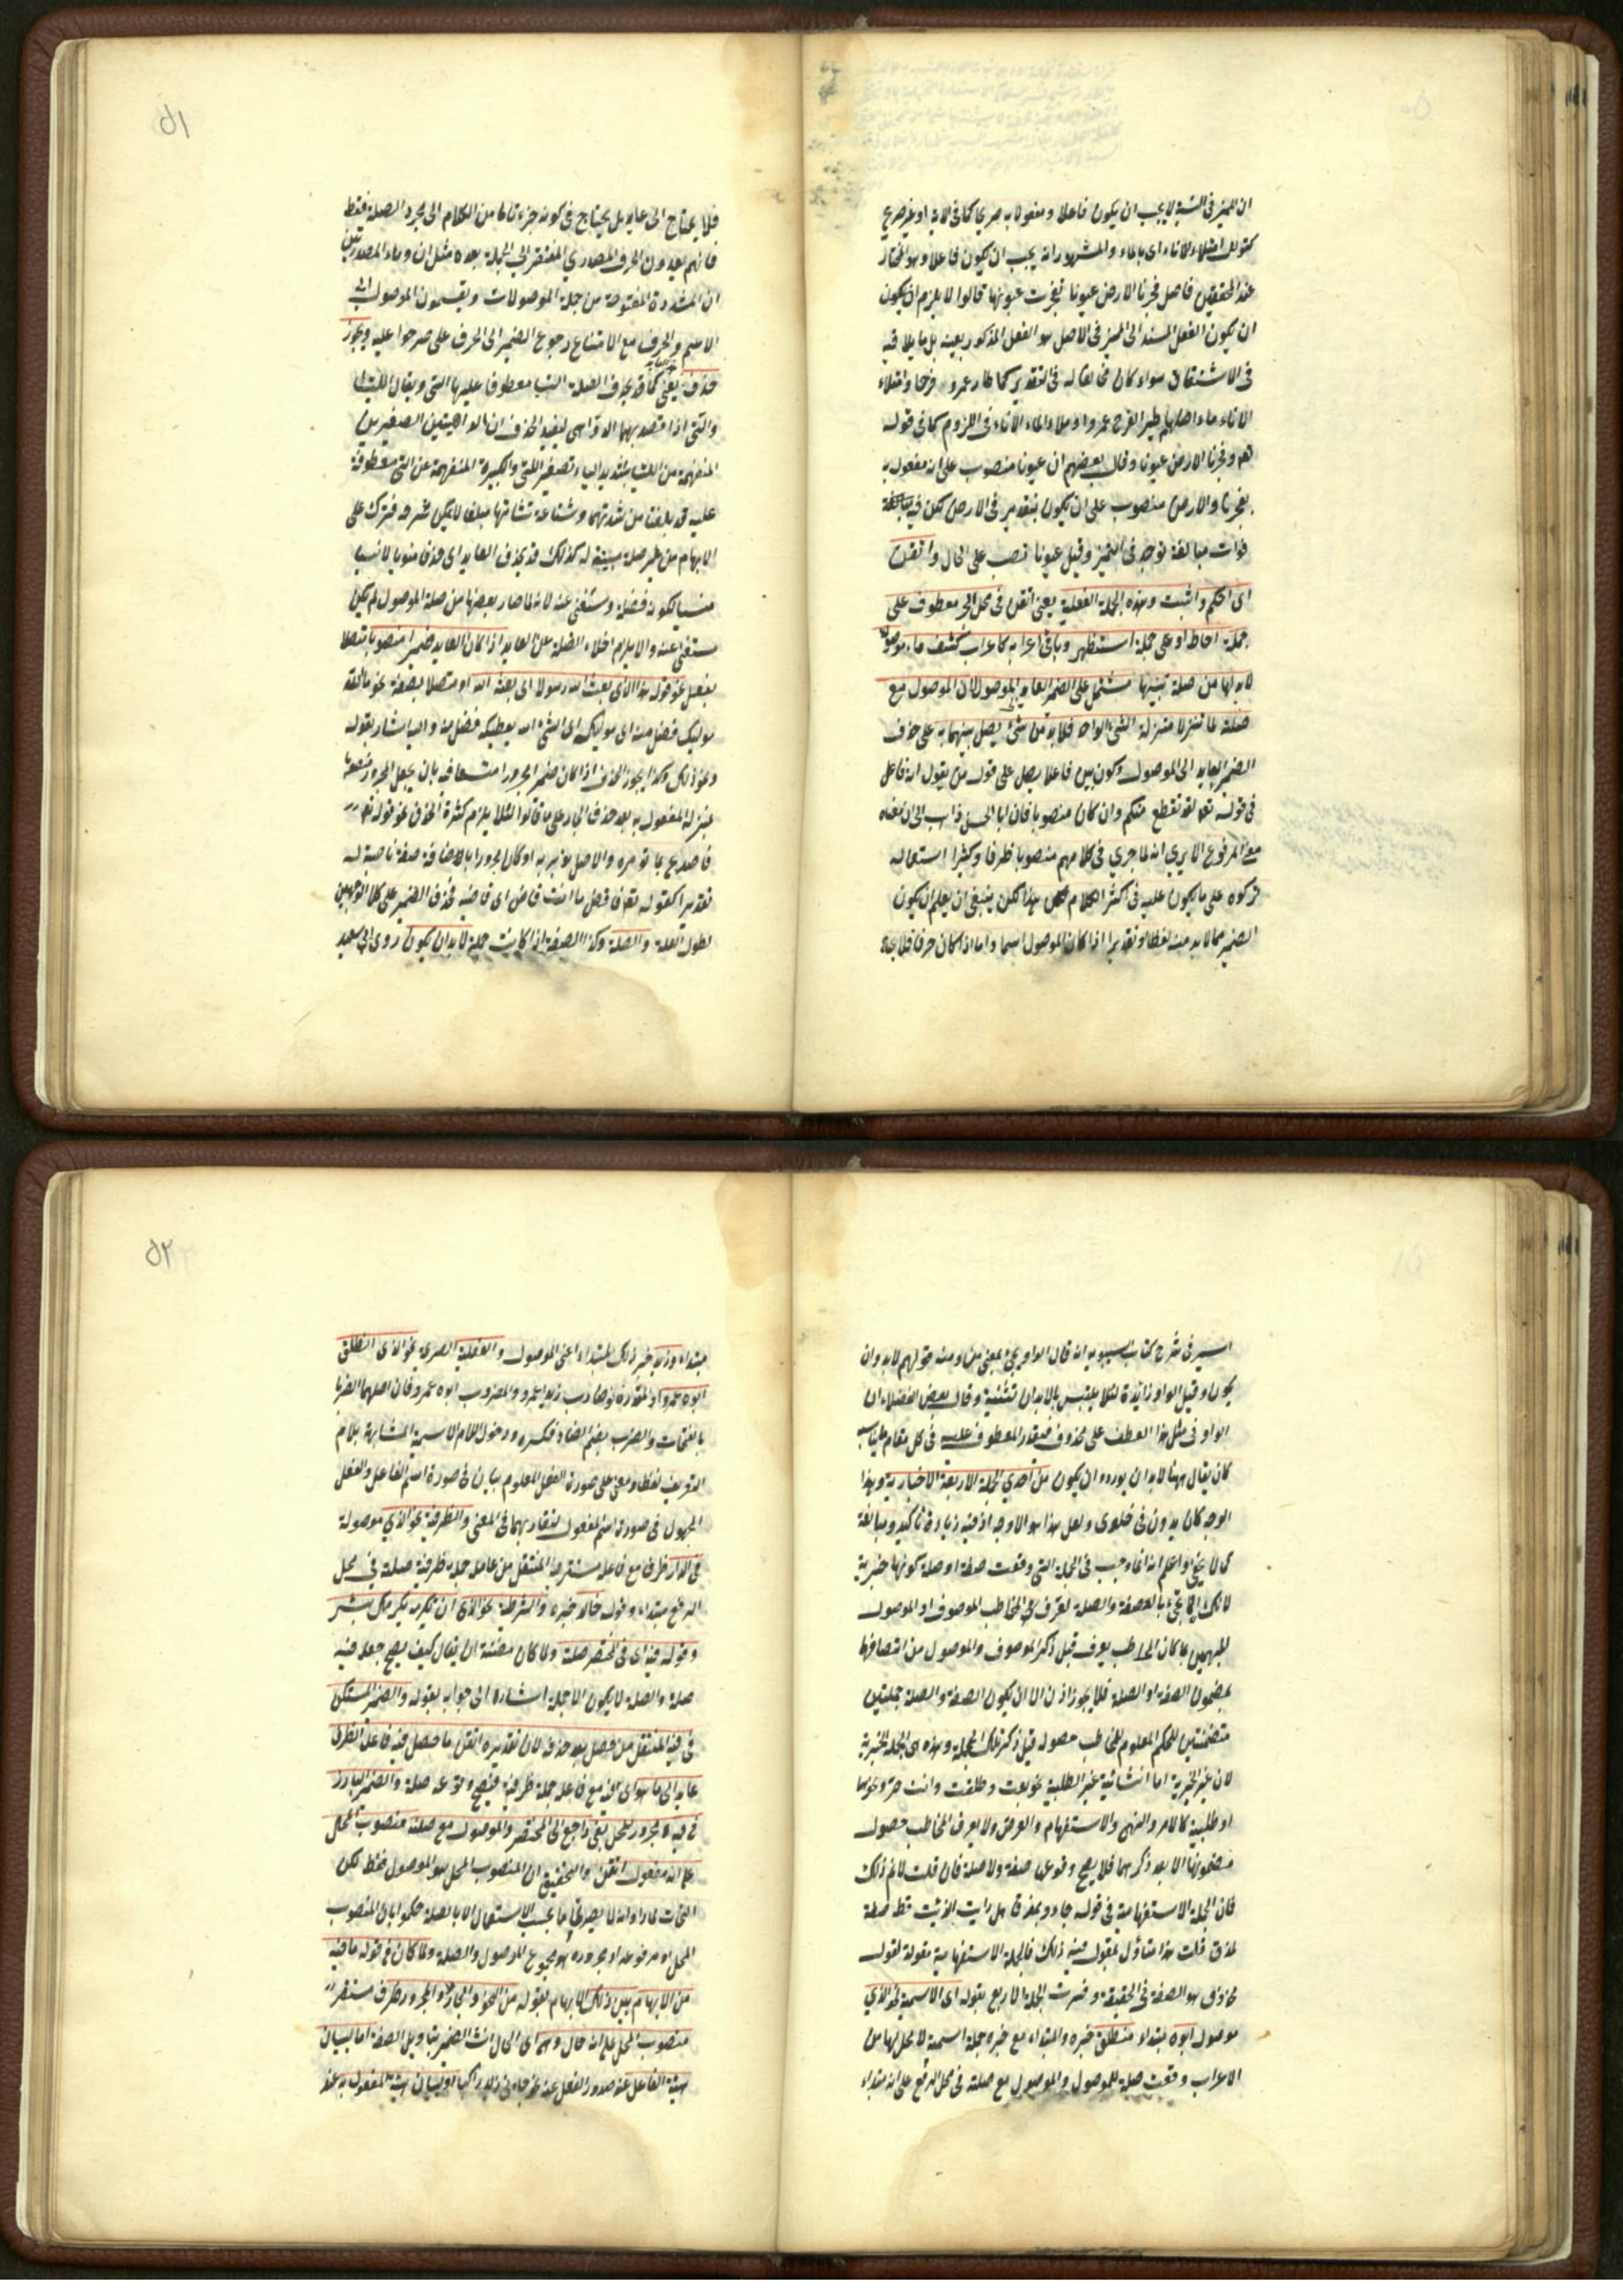 ان المميز فى النسبة لا يجب ان يكون فاعلا و مفعولا به صريحا كما فى الاية او غير صريح
كقولك امتلاء الاناء اى بالماء والمشهور انه يجب ان يكون فاعلا وهو المختار
عند المحققين فاصل فجرنا الارض عيونا تفجرت عيونها قالوا لا يلزم ان يكون
ان يكون الفعل المسند الى المميز فى الاصل هو الفعل المذكور بعينه بل ما يلاقيه
فى الاشتقاق سواء كان مخالفا له فى التقدير كما طار عمرو فرحا وامتلاء
الاناء ماء اصلهما طير الفرح عمروا و ملاء الماء الاناء فى اللزوم كما فى قوله
تعم وفجرنا الارض عيونا وقال بعضهم ان عيونا منصوب على انه مفعول به
بفجرنا والارض منصوب على ان يكون بتقدير فى الارض لكن فيه
فوات مبالغة توجد فى التميز وقيل عيونا نصب على الحال واتقن
اى احكم واثبت وهذه الجملة الفعلية يعنى اتقن فى محل الجر معطوف على
جملة احاط او على جملة استظهر وباقى اعرابه كاعراب كشف ما موصولة
لابد لها من صلة تبينها مشتمل على الضمير العايد الى الموصول لان الموصول مع
صلته لما تنزلا منزلة الشئ الواحد فلابد من شئ يصل بينهما به على حذف
الضمير العايد الى الموصول وكون بين فاعلا يصل على قول من يقول انه فاعل
فى قوله تعم لقد تقطع بينكم وان كان منصوبا فان ابا الحسن ذاهب الى ان معناه
معنى المرفوع الا يرى انه لما جرى فى كلامهم منصوبا ظرفا وكثيرا استعماله
تركوه على ما يكون عليه فى اكثر الكلام هذا لكن ينبغى ان يعلم ان يكون
الضمير مما لابد منه لفظا او تقديرا اذا كان الموصول اسما واما اذا كان حرفا فلا يجوز
٥١
فلا يحتاج الى عايد بل يحتاج فى كونه جزء تاما من الكلام الى مجرد الصلة فقط
فانهم يعدون الحرف المصدرى المفتقر الى الجملة بعده مثل ان وماء المصدريتين
ان المشددة المفتوحة من جملة الموصولات ويقسمون الموصول الى
الاسم والحرف مع الامتناع رجوع الضمير الى الحرف على صرحوا عليه ويجوز
حذفه يعنى كما قد يحذف الصلة التيا معطوفا عليها التى ويقال اللتيا
والتى اذا قصد بهما الدواهى ليفيد الحذف ان الداهيتين الصغيرين
المنفهمة من اللتيا بتشديد الياء تصغير التى والكبيرة المنفهمة من التى معطوفة
عليه قد بلغتا من شدتهما وشناعة شانها مبلغا لايمكن شرحه فترك على
الابهام من غير صلة مبينة له كذلك قد يحذف العايد اى حذفا منويا لا نسيا
منسيا لكونه فضلة ومستغنى عنه لانه لما صار بعضها من صلة الموصول لم يكن
مستغنى عنه والا يلزم اخلاء الصلة عن العايد اذا كان العايد ضميرا منصوبا متصلا
بفعل نحو قوله هذا الذى بعث الله رسولا اى بعثه الله او متصلا بصفة نحو ما الله
موليك فضل منه اى موليكه اى الشئ الله يعطيكه فضل منه واليه اشار بقوله
ونحو ذلك وكذا يجوز الحذف اذا كان ضمير المجرورا متسعا فيه بان يجعل المجرور
بمنزلة المفعول به بعد حذف الجار على ما قالوا لئلا يلزم كثرة الحذف نحو قوله تعم
فاصدع بما تومر والاصل تومر به او كان مجرورا بالاضافة صفة ناصبة له
تقديرا كقوله تعم فاقض ما انت قاض اى قاضيه فحذف الضمير على كلا الوجهين
لطول الصلة والصلة وكذا الصفة اذا كانت جملة لابد ان يكون روى ابى سعيد
السير فى شرح كتاب سيبويه انه قال الواو يجئ بمعنى من ومنه قولهم لابد وان
يكون وقيل الواو زائدة لئلا يلتبس بالابدان تثنية وقال بعض الفضلاء ان
الواو فى مثل هذا العطف على محذوف فيقدر المعطوف عليه فى كل مقام ما يناسبه
كان يقال ههنا لابد ان يورد وان يكون من احدى الجملة الاربعة الاخبارية وهذا
الوجه كان يدون فى خلدى ولعل هذا هو الاوجه اذ فيه زيادة تاكيد ومبالغة
كما لا يخفى واعلم انه انما وجب فى الجملة التى وقعت صفة او صلة كونها خبرية
لانك انما تجئ بالصفة والصلة لتعرف المخاطب الموصوف او الموصول
المبهمين بما كان المخاطب يعرف قبل ذكر الموصوف والموصول من اتصافها
بمضمون الصفة او الصلة فلا يجوز اذن الا ان يكون الصفة والصلة جملتين
متضمنتين للحكم المعلوم للمخاطب حصوله قبل ذكر تلك الجملة وهذه هى الجملة الخبرية
لان غير الخبرية اما انشائية غير الطلبية نحو بعت وطلقت وانت حرة ونحوها
او طلبية كالامر والنهى والاستفهام والعرض ولا يعرف المخاطب حصول
مضمونها الا بعد ذكرهما فلا يصح وقوعها صفة ولا صلة فان قلت لانم ذلك
فان الجملة الاستفهامية فى قوله جاؤ بمذق هل رايت الذئب قط صفة
لمذق قلت هذا متأول بمقول فيه ذلك فالجملة الاستفهامية مقولة لقول
محذوف هو الصفة فى الحقيقة وفسرت الجملة الاربع بقوله اى الاسمية نحو الذى
موصول ابوه مبتداء منطلق خبره والمبتداء مع خبره جملة اسمية لا محل لها من
الاعراب وقعت صلة للموصول والموصول مع صلته فى محل الرفع على انه مبتداء
٥٢
مبتداء وزيد خبر ذلك المبتداء اعنى الموصول والفعلية الصرية نحو الذى انطلق
ابوه عمرو او المقدرة نحو ضارب زيد اعمرو والمضروب ابوه عمرو فان اصلهما الضربا
بالفتحات والضرب بضم الضاد فكسره ودخول اللام الاسمية المشابهة بلام
التعريف لفظا ومعنى على صورة الفعل المعلوم بيان فى صورة اسم الفاعل والفعل
المجهول فى صورة اسم المفعول لتقاربهما فى المعنى والظرفية نحو الذى موصولة
فى الدار ظرف مع فاعله مستتر فيه المنتقل من عامله جملة ظرفية صلة فى محل
الرفع مبتداء وقوله خالد خبره والشرطية نحو الذى ان تكرمه يكرمك بشر
وقوله فيه اى فى المختصر صلة ولما كان مضنة ان يقال كيف يصح جعل فيه
صلة والصلة لا يكون الا جملة اشارة الى جوابه بقوله والضمير المستكن
فى فيه المنتقل من حصل بعد حذفه لان تقديره اتقن ما حصل فيه فاعل الظرف
عايد الى ما هو اى انه مع فاعله جملة ظرفية فيصح وقوعه صلة والضمير البارز
فى فيه مجرور المحل يعنى راجع الى المختصر والموصول مع صلته منصوب المحل
على انه مفعول اتقن والتحقيق ان المنصوب المحل هو الموصول فقط لكن
النحات لما راوا انه لا يصير بحسب الاستعمال الا بالصلة حكموا بان المنصوب
المحل او مرفوعه او مجروره هو مجموع الموصول والصلة ولما كان فى قوله ما فيه
من الابهام بين ذلك الابهام بقوله من النحو والجار والمجرور ظرف مستقر
منصوب المحل على انه حال وهى اى الحال انث الضمير بتاويل الصفة اما لبيان
هيئة الفاعل عند صدور الفعل عنه نحو جاءنى زيد راكبا او لبيان هيئة المفعول به عند